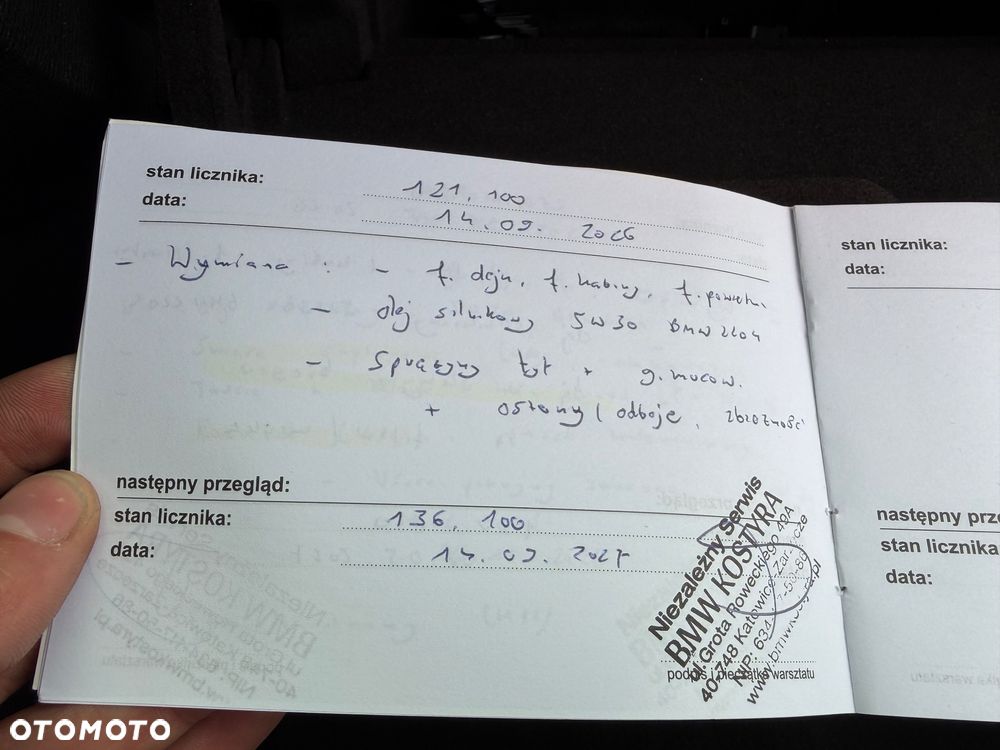 stan licznika: 121.100
data: 14.09. 2026
- Wymiana : - f. oleju, f. kabiny, f. powietrz.
- olej silnikowy 5W30 BMW LL04
- Sprężyny tył + g. mocow.
+ osłony / odboje, zbieżność
następny przegląd:
stan licznika: 136.100
data: 14.09. 2027
Niezależny Serwis
BMW KOSTYRA
ul. Grota Roweckiego 40A
40-748 Katowice
NIP: 634
www.bmwkostyra.pl
podpis i pieczątka warsztatu
stan licznika:
data:
następny prze
stan licznika
data:
OTOMOTO